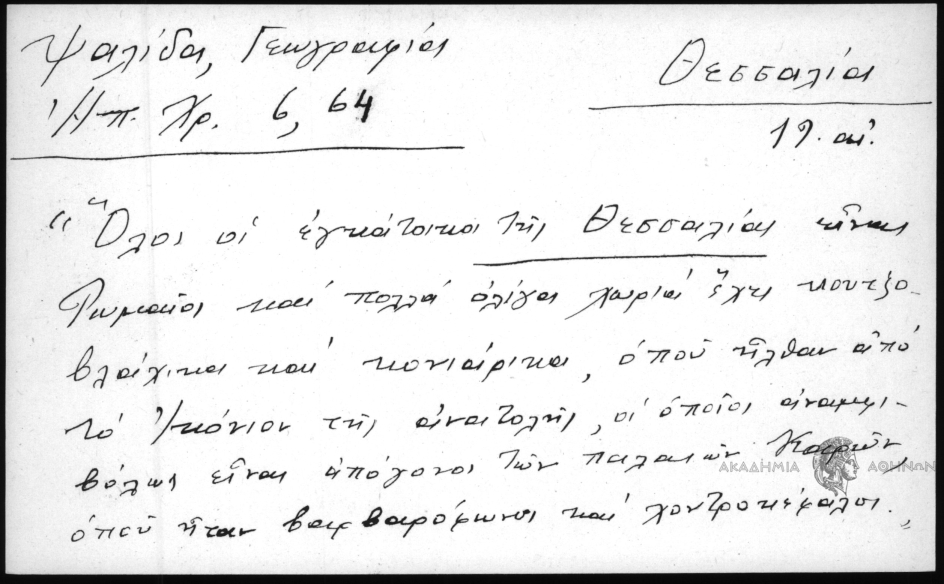 Ψαλίδα, Γεωγραφία
Ἠπ. Χρ. 6, 64
Θεσσαλία
19. αἰ.
“Ὅλοι οἱ ἐγκάτοικοι τῆς Θεσσαλίας εἶναι
Ρωμαῖοι καί πολλά ὀλίγα χωριά ἔχει κουτζο-
βλάχικα καί κονιάρικα, ὁποῦ ἦλθαν ἀπό
τό Ἰκόνιον τῆς ἀνατολῆς, οἱ ὁποῖοι ἀναμφι-
βόλως εἶναι ἀπόγονοι τῶν παλαιῶν Καρῶν
ὁποῦ ἦταν βαρβαρόφωνοι καί χοντροκέφαλοι.„
ΑΚΑΔΗΜΙΑ ΑΘΗΝΩΝ